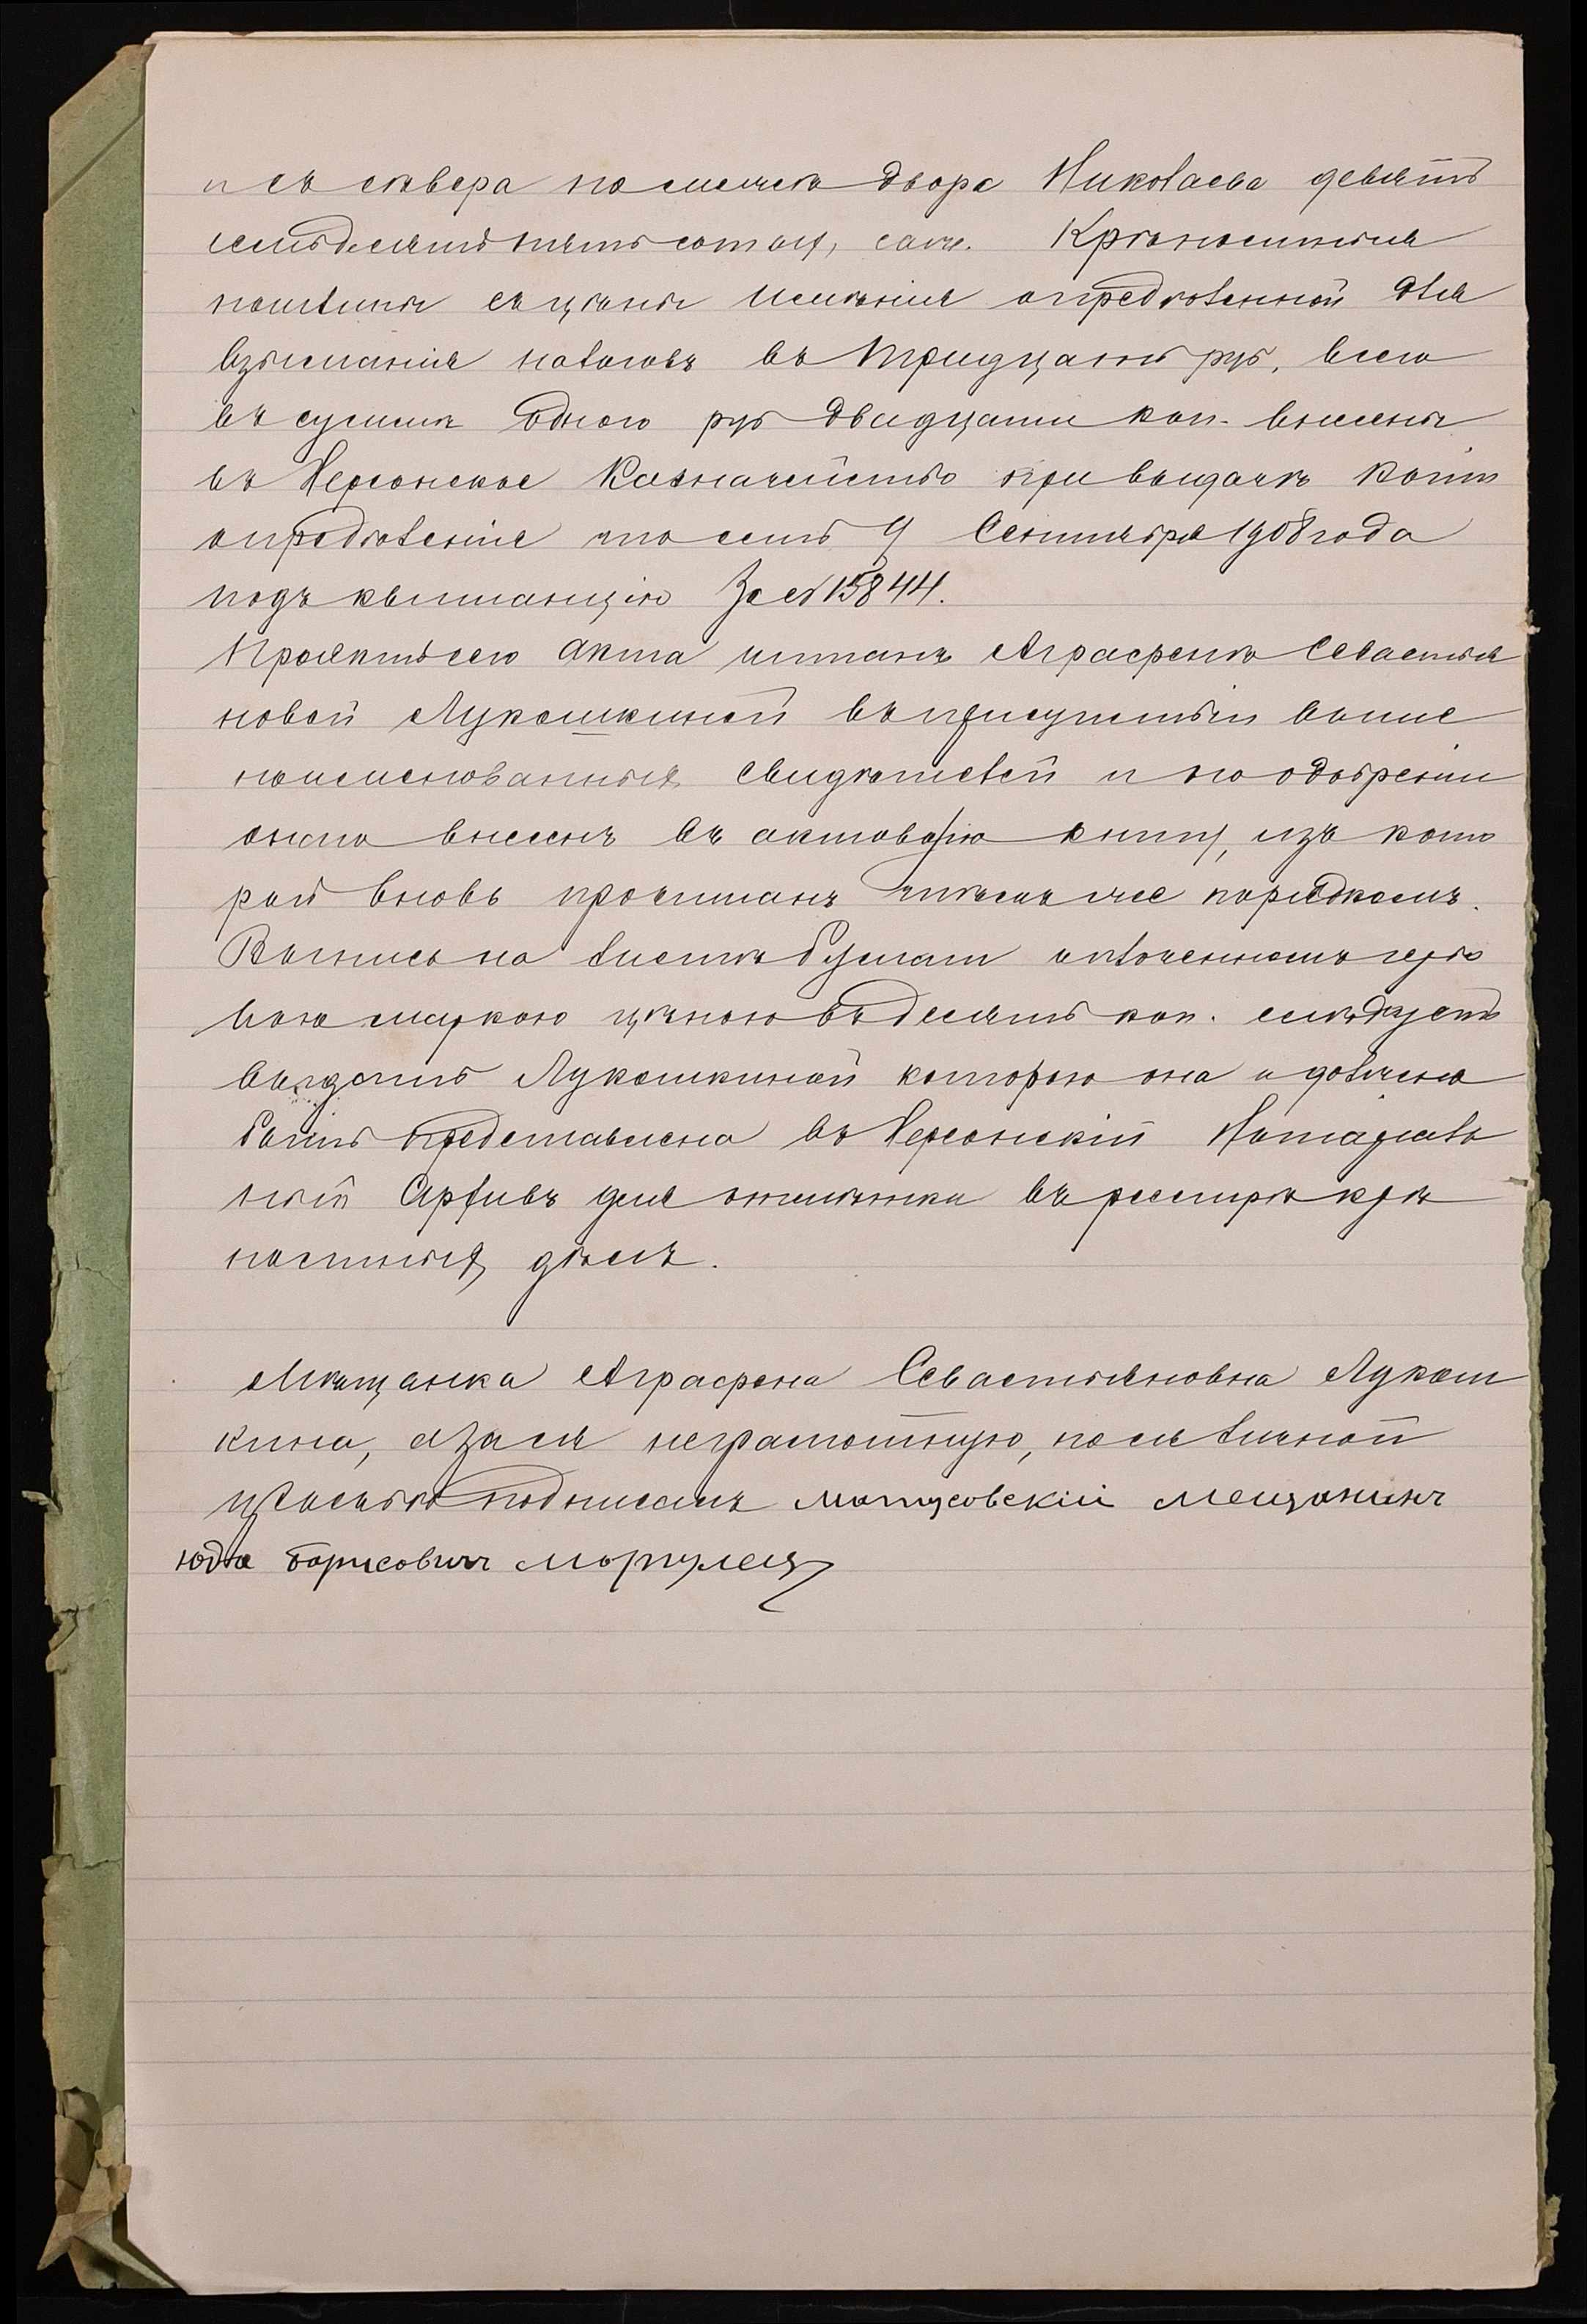 и съ сѣвера по смежек двора Николаева девять
семьдесятъ пять сотых, саж. Крѣпостныя
пошлины съ цѣны имѣнія опредѣленной для
взыманія налоговъ въ тридцать руб, всего
въ суммѣ одного руб двадцати коп. внесены
въ Херсонское Казначейство при выдачѣ копіи
опредѣленія то есть 9 Сентября 1908 года
подъ квитанцію За № 15844.
Проектъ сего акта читанъ Аграфенѣ Севастья
новой Лукашкиной въ присутствіи выше
поименованныхъ свидѣтелей и по одобреніи
онаго внесенъ въ актовую книгу, изъ кото
рой вновь прочитанъ тѣмъ же порядкомъ.
Выпись на листѣ бумаги оплоченномъ гербо
вою маркою цѣною въ десять коп. слѣдуетъ
выдать Лукашкиной которою она и должна
быть представлена въ Херсонскій Нотаріаль
ный Архивъ для отмѣтки въ реестрѣ крѣ
постныхъ дѣлъ.
Мѣщанка Аграфена Севастьяновна Лукаш
кина, а за ея неграмотную, по ея личной
просьбѣ подписалъ Матусовскій мещанинъ
Юдка Борисовичъ Моргулец